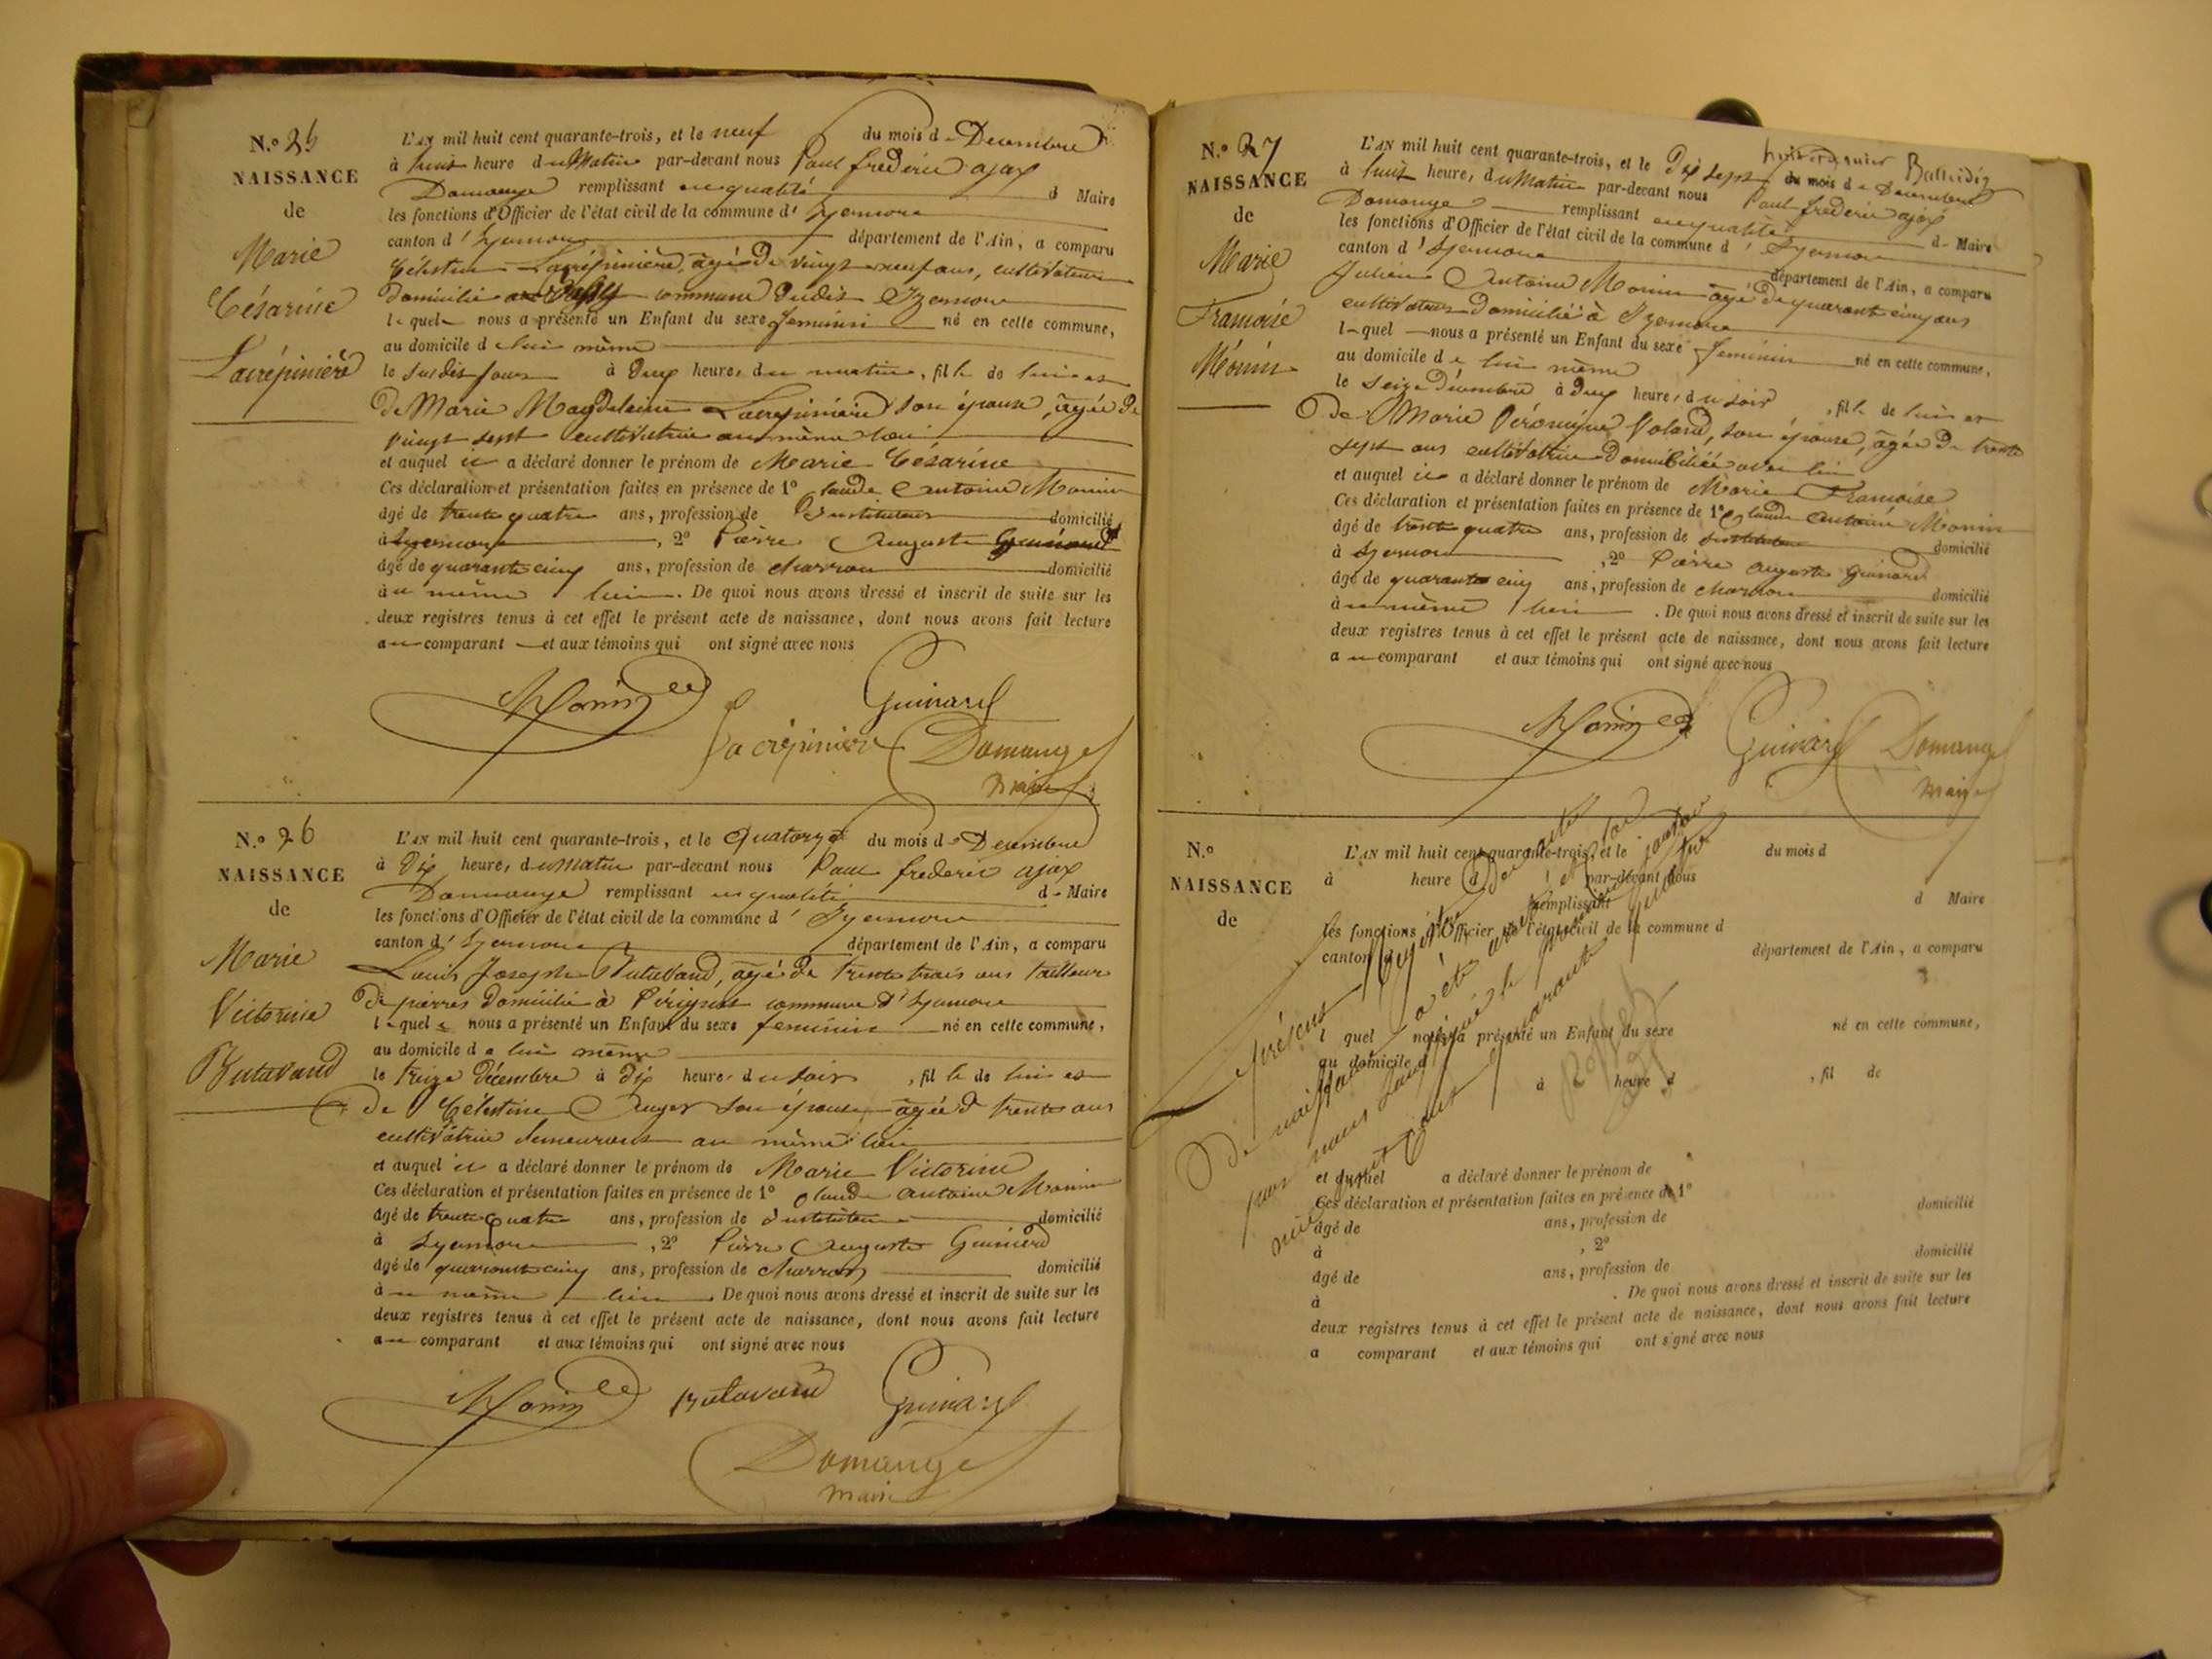 N.° 25
NAISSANCE
de
Marie
Césarine
Lacrépinière
L'AN mil huit cent quarante-trois, et le neuf du mois de Decembre
à huit heure du Matin par-devant nous Paul frederic ajax
Domange remplissant en qualité d Maire
les fonctions d'Officier de l'état civil de la commune d' Izernore
canton d' Izernore département de l'Ain, a comparu
Célestin Lacrépinière, âgé de vingt neuf ans, cultivateur
domicilié commune dudit Izernore
lequel nous a présenté un Enfant du sexe feminin né en cette commune,
au domicile de lui même
le susdit jour à deux heures du matin, fille de lui et
de Marie Magdeleine Lacrépinière son épouse, âgée de
vingt sept cultivatrice au même lieu
et auquel il a déclaré donner le prénom de Marie Césarine
Ces déclaration et présentation faites en présence de 1° Claude Antoine Monin
âgé de trente quatre ans, profession de Instituteur domicilié
à Izernore, 2° Pierre Auguste Guinard
âgé de quarante cinq ans, profession de charron domicilié
au même lieu. De quoi nous avons dressé et inscrit de suite sur les
deux registres tenus à cet effet le présent acte de naissance, dont nous avons fait lecture
au comparant et aux témoins qui ont signé avec nous
Monin Guinard
Lacrépinière Domange
maire
N.° 26
NAISSANCE
de
Marie
Victorine
Butavand
L'AN mil huit cent quarante-trois, et le Quatorze du mois de Decembre
à dix heure, du Matin par-devant nous Paul frederic ajax
Domange remplissant en qualité d Maire
les fonctions d'Officier de l'état civil de la commune d' Izernore
canton d' Izernore département de l'Ain, a comparu
Louis Joseph Butavand, âgé de trente trois ans tailleur
de pierres domicilié à Pérignat commune d'Izernore
lequel nous a présenté un Enfant du sexe feminin né en cette commune,
au domicile de lui même
le treize Décembre à dix heures du soir, fille de lui et
de Célestine Auger son épouse âgée d trente ans
cultivatrice demeurant au même lieu
et auquel il a déclaré donner le prénom de Marie Victorine
Ces déclaration et présentation faites en présence de 1° Claude Antoine Monin
âgé de trente quatre ans, profession de Instituteur domicilié
à Izernore, 2° Pierre Auguste Guinard
âgé de quarante cinq ans, profession de charron domicilié
au même lieu. De quoi nous avons dressé et inscrit de suite sur les
deux registres tenus à cet effet le présent acte de naissance, dont nous avons fait lecture
au comparant et aux témoins qui ont signé avec nous
Monin Butavand Guinard
Domange
maire
N.° 27
NAISSANCE
de
Marie
Françoise
Monin
L'AN mil huit cent quarante-trois, et le dix sept du mois de Decembre
à huit heure, du Matin par-devant nous Paul frederic ajax
Domange remplissant en qualité d Maire
les fonctions d'Officier de l'état civil de la commune d' Izernore
canton d' Izernore département de l'Ain, a comparu
Julien Antoine Monin âgé de quarante cinq ans
cultivateur domicilié à Izernore
lequel nous a présenté un Enfant du sexe feminin né en cette commune,
au domicile de lui même
le seize Décembre à deux heures du soir, fille de lui et
de Marie Véronique Voland, son épouse, âgée de trente
sept ans cultivatrice domiciliée avec lui
et auquel il a déclaré donner le prénom de Marie Françoise
Ces déclaration et présentation faites en présence de 1° Claude Antoine Monin
âgé de trente quatre ans, profession de Instituteur domicilié
à Izernore, 2° Pierre Auguste Guinard
âgé de quarante cinq ans, profession de charron domicilié
au même lieu. De quoi nous avons dressé et inscrit de suite sur les
deux registres tenus à cet effet le présent acte de naissance, dont nous avons fait lecture
au comparant et aux témoins qui ont signé avec nous
Monin Guinard Domange
maire
N.°
NAISSANCE
de
L'AN mil huit cent quarante-trois, et le du mois d
à heure d par-devant nous
remplissant d Maire
les fonctions d'Officier de l'état civil de la commune d
canton d département de l'Ain, a comparu
l quel nous a présenté un Enfant du sexe né en cette commune,
au domicile d
à heure d, fil de
et auquel a déclaré donner le prénom de
Ces déclaration et présentation faites en présence de 1°
âgé de ans, profession de domicilié
à, 2°
âgé de ans, profession de domicilié
à. De quoi nous avons dressé et inscrit de suite sur les
deux registres tenus à cet effet le présent acte de naissance, dont nous avons fait lecture
a comparant et aux témoins qui ont signé avec nous
Le présent Registre des actes
de naissance a été
par nous
mil huit cent quarante quatre